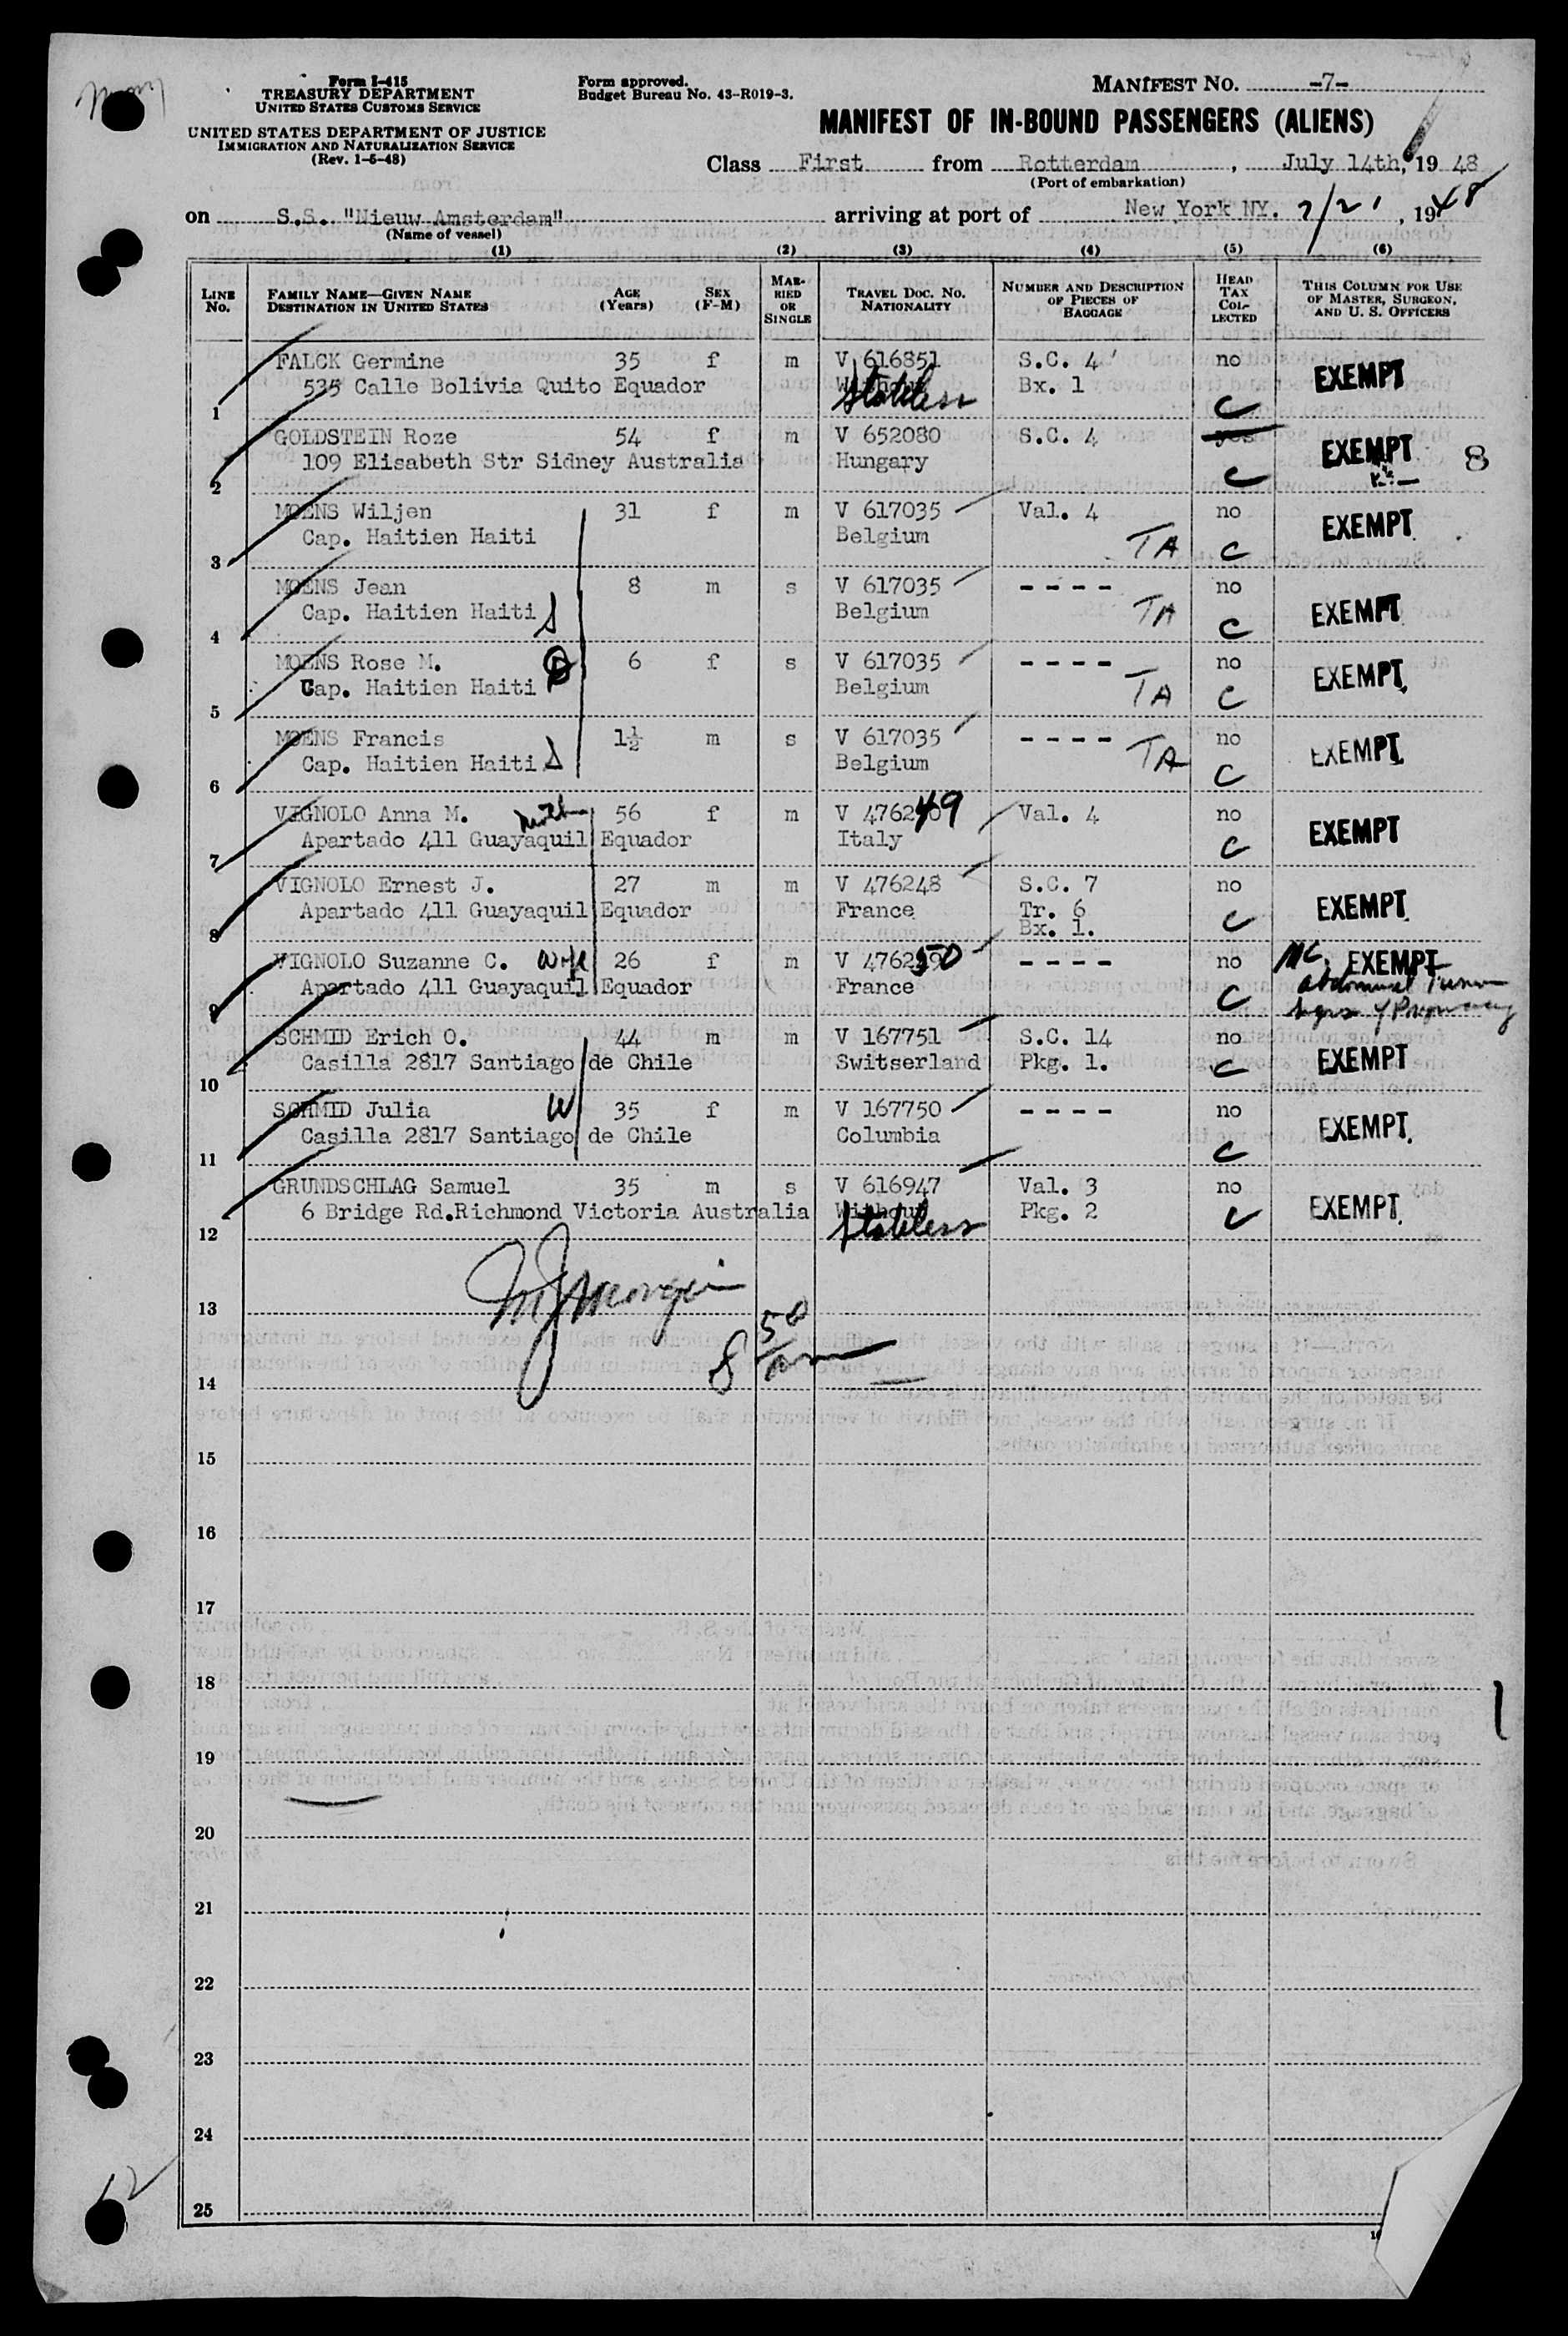 Form I-415
TREASURY DEPARTMENT
UNITED STATES CUSTOMS SERVICE
UNITED STATES DEPARTMENT OF JUSTICE
IMMIGRATION AND NATURALIZATION SERVICE
(Rev. 1-5-48)
Form approved.
Budget Bureau No. 43-R019-3.
MANIFEST NO. -7-
MANIFEST OF IN-BOUND PASSENGERS (ALIENS)
Class First from Rotterdam, July 14th, 1948
(Port of embarkation)
on S.S. "Nieuw Amsterdam" arriving at port of New York NY. 7/21, 1948
(Name of vessel)
(1) (2) (3) (4) (5) (6)
LINE No. FAMILY NAME—GIVEN NAME DESTINATION IN UNITED STATES AGE (Years) SEX (F-M) MARRIED OR SINGLE TRAVEL DOC. NO. NATIONALITY NUMBER AND DESCRIPTION OF PIECES OF BAGGAGE HEAD TAX COLLECTED THIS COLUMN FOR USE OF MASTER, SURGEON, AND U. S. OFFICERS
FALCK Germine 35 f m V 616851 S.C. 4 no EXEMPT
1 535 Calle Bolivia Quito Equador Without Stateless Bx. 1 C
GOLDSTEIN Roze 54 f m V 652080 S.C. 4 yes EXEMPT 8
2 109 Elisabeth Str Sidney Australia Hungary C
MOENS Wiljen 31 f m V 617035 Val. 4 no EXEMPT
3 Cap. Haitien Haiti Belgium TA C
MOENS Jean 8 m s V 617035 ---- no EXEMPT
4 Cap. Haitien Haiti S Belgium TA C
MOENS Rose M. D 6 f s V 617035 ---- no EXEMPT
5 Cap. Haitien Haiti Belgium TA C
MOENS Francis 1½ m s V 617035 ---- no EXEMPT
6 Cap. Haitien Haiti S Belgium TA C
VIGNOLO Anna M. 56 f m V 476249 Val. 4 no EXEMPT
7 Apartado 411 Guayaquil Equador Italy C
VIGNOLO Ernest J. 27 m m V 476248 S.C. 7 no EXEMPT
8 Apartado 411 Guayaquil Equador France Tr. 6 C
Bx. 1.
VIGNOLO Suzanne C. wife 26 f m V 476250 ---- no MC. EXEMPT
9 Apartado 411 Guayaquil Equador France C abdominal Tumor
signs of Pregnancy
SCHMID Erich O. 44 m m V 167751 S.C. 14 no EXEMPT
10 Casilla 2817 Santiago de Chile Switserland Pkg. 1. C
SCHMID Julia W 35 f m V 167750 ---- no EXEMPT
11 Casilla 2817 Santiago de Chile Columbia C
GRUNDSCHLAG Samuel 35 m s V 616947 Val. 3 no EXEMPT
12 6 Bridge Rd.Richmond Victoria Australia Without Stateless Pkg. 2 C
13
8 50 am
14
15
16
17
18
19
20
21
22
23
24
25
12